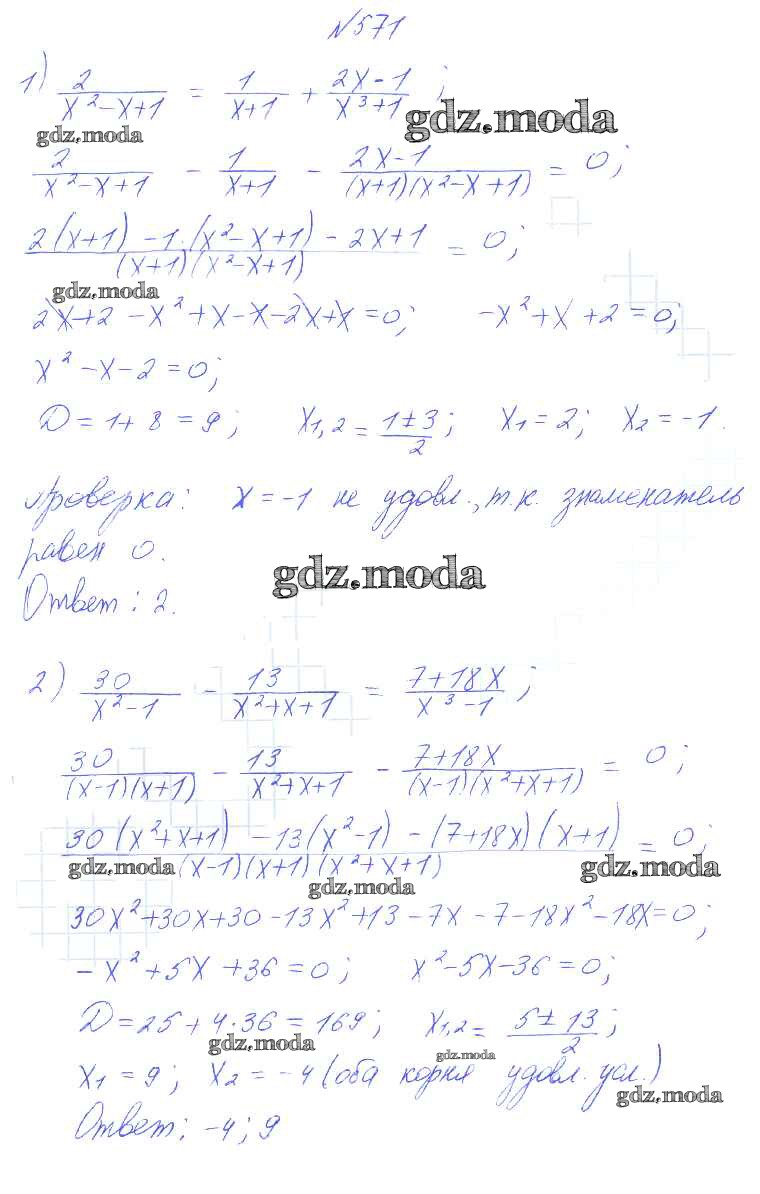 №571
1) 2/(x²-x+1) = 1/(x+1) + (2x-1)/(x³+1);
gdz.moda
gdz.moda
2/(x²-x+1) - 1/(x+1) - (2x-1)/((x+1)(x²-x+1)) = 0;
(2(x+1) -1·(x²-x+1) - 2x+1)/((x+1)(x²-x+1)) = 0;
gdz.moda
2x+2 -x²+x-x-2x+x=0; -x²+x+2=0;
x²-x-2=0;
D=1+8=9; x₁,₂=(1±3)/2; x₁=2; x₂=-1.
Проверка: x=-1 не удовл., т.к. знаменатель
равен 0.
gdz.moda
Ответ: 2.
2) 30/(x²-1) - 13/(x²+x+1) = (7+18x)/(x³-1);
30/((x-1)(x+1)) - 13/(x²+x+1) - (7+18x)/((x-1)(x²+x+1)) = 0;
(30(x²+x+1) -13(x²-1) -(7+18x)(x+1))/((x-1)(x+1)(x²+x+1)) = 0;
gdz.moda
gdz.moda
gdz.moda
30x²+30x+30-13x²+13-7x-7-18x²-18x=0;
-x²+5x+36=0; x²-5x-36=0;
D=25+4·36=169; x₁,₂=(5±13)/2;
gdz.moda
gdz.moda
x₁=9; x₂=-4 (оба корня удовл. усл.)
gdz.moda
Ответ: -4; 9